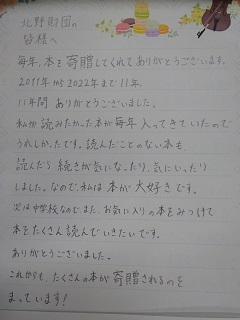 北野財団の
皆様へ
毎年、本を寄贈してくれてありがとうございます。
2011年から2022年まで11年、
11年間 ありがとうございました。
私が読みたかった本が毎年入ってきていたので
うれしかったです。読んだことのない本も
読んだら続きが気になったり、気にいったり
しました。なので、私は本が大好きです。
次は中学校なのでまた、お気に入りの本をみつけて
本をたくさん読んでいきたいです。
ありがとうございました。
これからも、たくさんの本が寄贈されるのを
まっています!